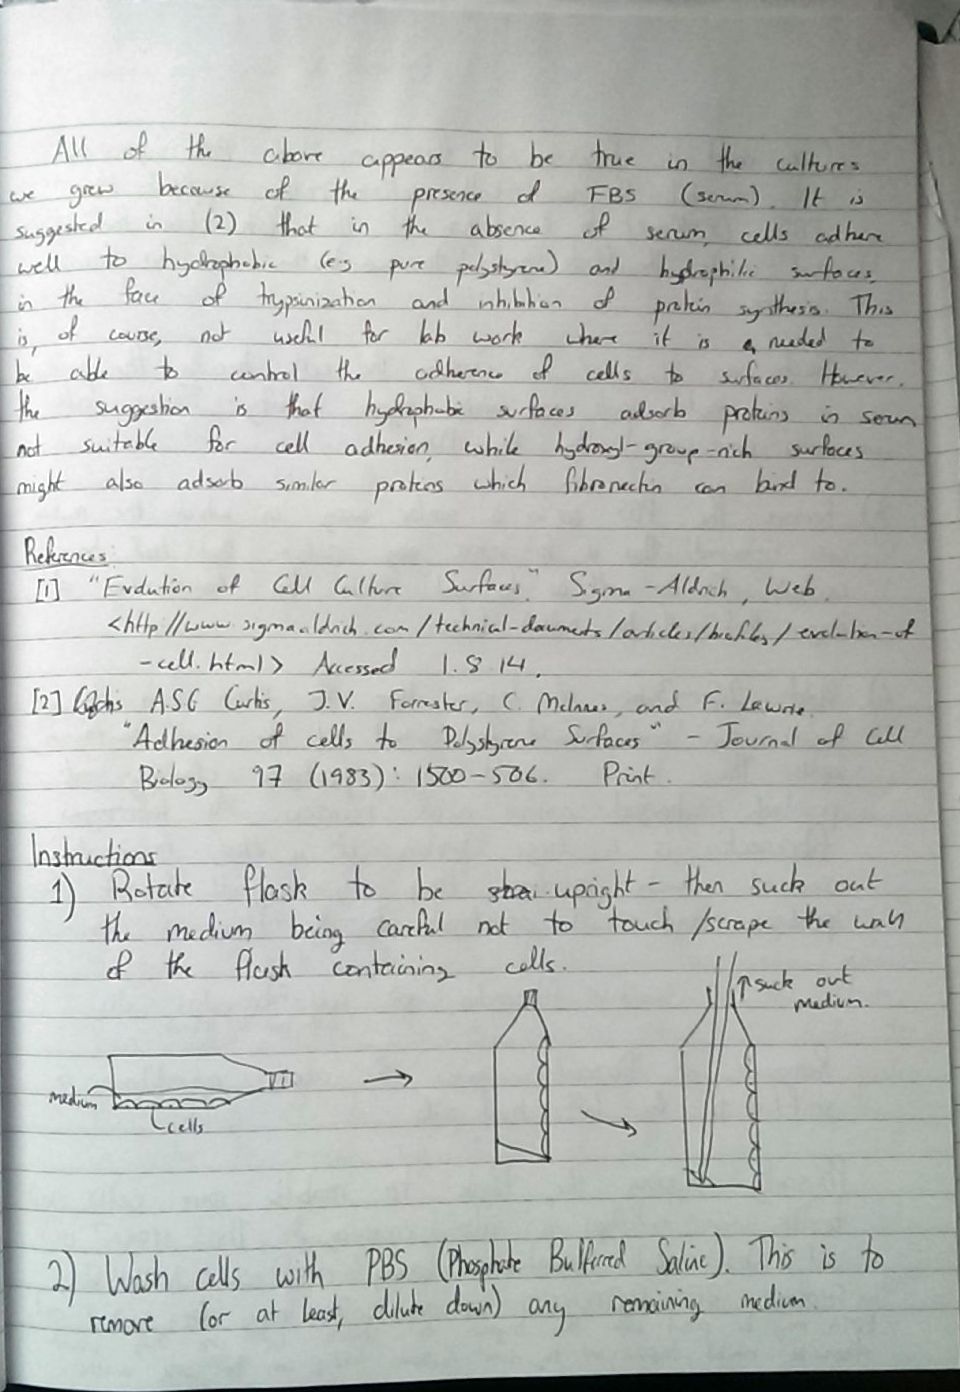 All of the above appears to be true in the cultures
we grew because of the presence of FBS (serum). It is
suggested in (2) that in the absence of serum, cells adhere
well to hydrophobic (e.g pure polystyrene) and hydrophilic surfaces,
in the face of trypsinization and inhibition of protein synthesis. This
is, of course, not useful for lab work where it is needed to
be able to control the adherence of cells to surfaces. However,
the suggestion is that hydrophobic surfaces adsorb proteins in serum
not suitable for cell adhesion, while hydroxyl-group-rich surfaces
might also adsorb similar proteins which fibronectin can bind to.
References:
[1] "Evolution of Cell Culture Surfaces." Sigma-Aldrich, Web.
<http://www.sigmaaldrich.com/technical-documents/articles/biofiles/evolution-of
-cell.html> Accessed 1.8.14.
[2] A.S.G Curtis, J.V. Forrester, C. McInnes, and F. Lawrie.
"Adhesion of cells to Polystyrene Surfaces" - Journal of Cell
Biology 97 (1983): 1500-506. Print.
Instructions
1) Rotate flask to be upright - then suck out
the medium being careful not to touch/scrape the wall
of the flask containing cells.
↑suck out
medium.
medium
cells
2) Wash cells with PBS (Phosphate Buffered Saline). This is to
remove (or at least, dilute down) any remaining medium.